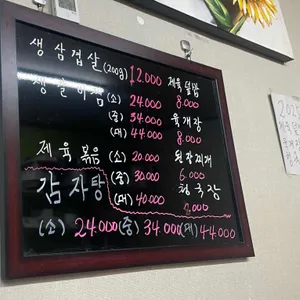 생삼겹살(200g) 12.000
(소) 24.000
(중) 34.000
(대) 44.000
제육볶음 (소) 20.000
(중) 30.000
(대) 40.000
제육덮밥
8.000
육개장
8.000
된장찌개
6.000
청국장
7.000
감자탕
(소) 24.000 (중) 34.000 (대) 44.000
202